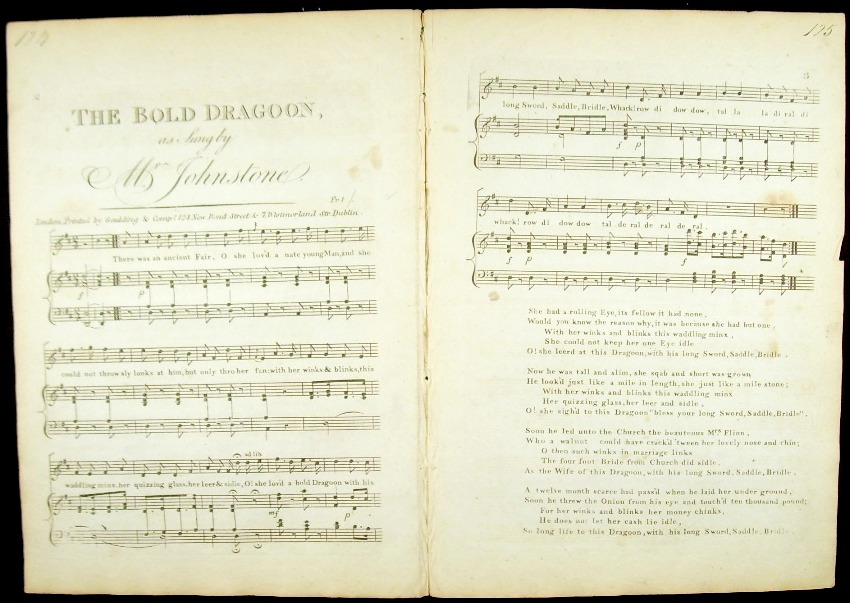 THE BOLD DRAGOON,
as Sung by
Mr. Johnstone.
Pr: 1
London Printed by Goulding & Comp: 124 New Bond Street & 7 Westmorland Str: Dublin.
There was an ancient Fair, O she lov'd a nate young Man, and she
f p
could not throw sly looks at him, but only thro' her fan: with her winks & blinks, this
ad lib
waddling minx, her quizzing glass, her leer & sidle, O! she lov'd a bold Dragoon with his
mf p
125
3
long Sword, Saddle, Bridle, Whack! row di dow dow, tal la la di ral di
f p
whack! row di dow dow tal de ral de ral de ral.
f p f
She had a rolling Eye, its fellow it had none,
Would you know the reason why, it was because she had but one,
With her winks and blinks this waddling minx,
She could not keep her one Eye idle
O! she leer'd at this Dragoon, with his long Sword, Saddle, Bridle.
Now he was tall and slim, she sqab and short was grown
He look'd just like a mile in length, she just like a mile stone;
With her winks and blinks this waddling minx
Her quizzing glass, her leer and sidle,
O! she sigh'd to this Dragoon "bless your long Sword, Saddle, Bridle".
Soon he led unto the Church the beauteous Mrs. Flinn,
Who a walnut could have crack'd 'tween her lovely nose and chin;
O then such winks in marriage links
The four foot Bride from Church did sidle.
As the Wife of this Dragoon, with his long Sword, Saddle, Bridle.
A twelve month scarce had pass'd when he laid her under ground,
Soon he threw the Onion from his eye and touch'd ten thousand pound;
For her winks and blinks her money chinks,
He does not let her cash lie idle,
So long life to this Dragoon, with his long Sword, Saddle, Bridle.